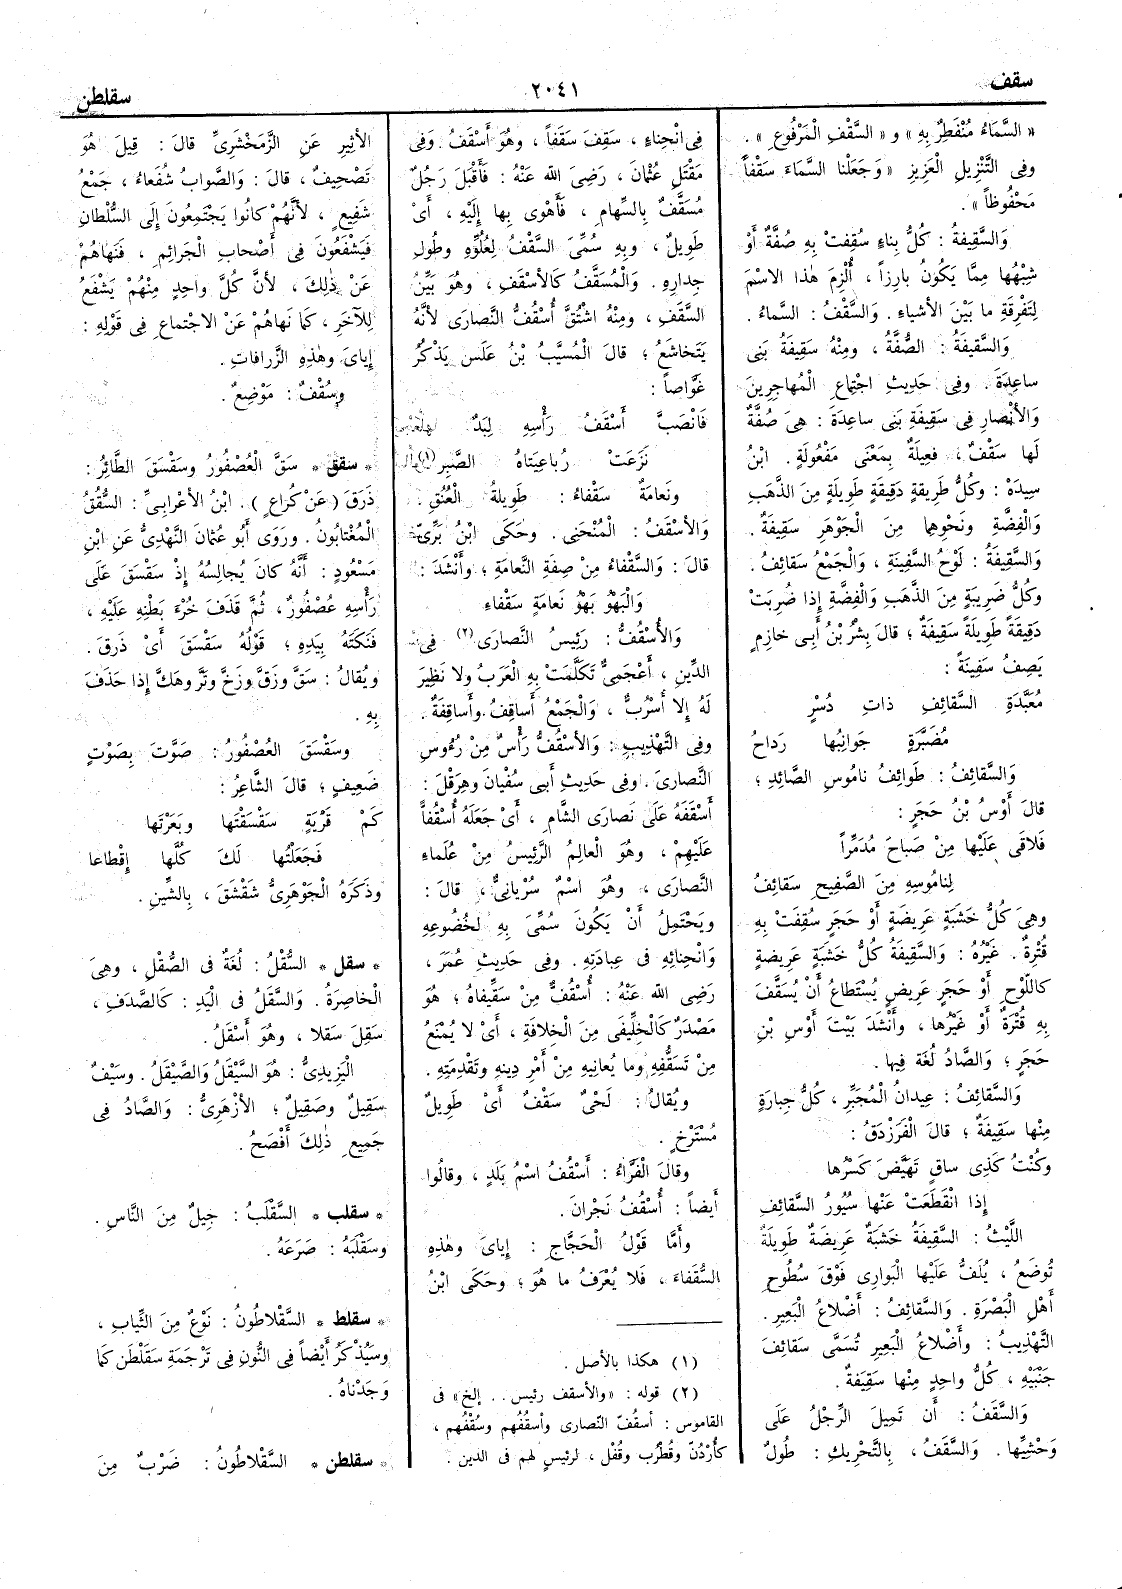 سقف
٢٠٤١
سقلطن
« السَّمَاءُ مُنْفَطِرٌ بِهِ » و « السَّقْفِ الْمَرْفُوعِ » .
وفِى التَّنْزِيلِ الْعَزِيزِ « وَجَعَلْنا السَّمَاءَ سَقْفاً
مَحْفُوظاً » .
وَالسَّقِيفَةُ : كُلُّ بِناءٍ سُقِفتْ بِهِ صُفَّةٌ أَوْ
شِبْهُها مِمَّا يَكُونُ بارِزاً ، أُلْزِمَ هٰذا الاسْمَ
لِتَفْرِقَةِ ما بَيْنَ الأَشْياءِ . وَالسَّقْفُ : السَّماءُ .
وَالسَّقيفَةُ : الصُّفَّةُ ، ومِنْهُ سَقِيفَةُ بَنِى
ساعِدَةَ . وفِى حَدِيثِ اجْتِماعِ الْمُهاجِرِينَ
وَالأَنْصارِ فِى سَقِيفَةِ بَنِى ساعِدَةَ : هِىَ صُفَّةٌ
لَها سَقْفٌ ، فَعِيلَةٌ بِمَعْنَى مَفْعُولَةٍ . ابْنُ
سِيدَهْ : وكُلُّ طَرِيقَةٍ دَقِيقَةٍ طَوِيلَةٍ مِنَ الذَّهَبِ
وَالْفِضَّةِ ونَحْوِها مِنَ الْجَوْهَرِ سَقِيفَةٌ .
وَالسَّقِيفَةُ : لَوْحُ السَّفِينَةِ ، وَالْجَمْعُ سَقائِفُ .
وكُلُّ ضَرِيبَةٍ مِنَ الذَّهَبِ وَالْفِضَّةِ إِذا ضُرِبَتْ
دَقِيقَةً طَوِيلَةً سَقِيفَةٌ ؛ قالَ بِشْرُ بْنُ أَبِى خازِمٍ
يَصِفُ سَفِينَةً :
مُعَبَّدَةِ السَّقائِفِ ذاتِ دُسْرٍ
مُضَبَّرَةٍ جَوانِبُها رَداحُ
وَالسَّقائِفُ : طَوائِفُ نامُوسِ الصَّائِدِ ؛
قالَ أَوْسُ بْنُ حَجَرٍ :
فَلاقَى عَلَيْها مِنْ صَباحَ مُدَمِّراً
لِنامُوسِهِ مِنَ الصَّفِيحِ سَقائِفُ
وهِىَ كُلُّ خَشَبَةٍ عَرِيضَةٍ أَوْ حَجَرٍ سُقِفَتْ بِهِ
قُتْرَةٌ . غَيْرُهُ : وَالسَّقِيفَةُ كُلُّ خَشَبَةٍ عَرِيضةٍ
كاللَّوْحِ أَوْ حَجَرٍ عَرِيضٍ يُسْتَطاعُ أَنْ يُسَقَّفَ
بِهِ قُتْرَةٌ أَوْ غَيْرُها ، وأَنْشَدَ بَيْتَ أَوْسِ بْنِ
حَجَرٍ ؛ وَالصَّادُ لُغَة فِيها .
وَالسَّقائِفُ : عِيدانُ الْمُجَبِّرِ ، كُلُّ جِبارَةٍ
مِنْها سَقِيفَةٌ ؛ قالَ الْفَرَزْدَقُ :
وكُنْتُ كَذِى ساقٍ تَهَيَّضَ كَسْرُها
إِذا انْقَطَعَتْ عَنْها سُيُورُ السَّقائِفِ
اللَّيْثُ : السَّقِيفَةُ خَشَبَةٌ عَرِيضَةٌ طَوِيلَةٌ
تُوضَعُ ، يُلَفُّ عَلَيْها الْبَوارِى فَوْقَ سُطُوحِ
أَهْلِ الْبَصْرَةِ . وَالسَّقائِفُ : أَضْلاعُ الْبَعِيرِ .
التَّهْذِيبُ : وأَضْلاعُ الْبَعِيرِ تُسَمَّى سَقائِفَ
جَنْبَيْهِ ، كُلُّ واحِدٍ مِنْها سَقِيفَةٌ .
وَالسَّقَفُ : أَن تَمِيلَ الرِّجْلُ عَلَى
وَحْشِيِّها . وَالسَّقَفُ ، بِالتَّحْرِيكِ : طُولٌ
فِى انْحِناءٍ ، سَقِفَ سَقَفاً ، وهُوَ أَسْقَفُ . وَفِى
مَقْتَلِ عُثْمانَ ، رَضِىَ اللّٰه عَنْهُ : فَأَقْبَلَ رَجُلٌ
مُسَقَّفٌ بِالسِّهامِ ، فَأَهْوى بِها إِلَيْهِ ، أَىْ
طَوِيلٌ ، وبِهِ سُمِّىَ السَّقْفُ لِعُلُوِّهِ وطُولِ
جِدارِهِ . وَالْمُسَقَّفُ كَالأَسْقَفِ ، وهُوَ بَيِّنُ
السَّقَفِ ، ومِنْهُ اشْتُقَّ أُسْقُفُّ النَّصارَى لأَنَّهُ
يَتَخاشَعُ ؛ قالَ الْمُسَيَّبُ بْنُ عَلَسٍ يَذْكُرُ
غَوَّاصاً :
فَانْصَبَّ أَسْقَفُ رَأْسِهِ لِبَدٌ
نَزَعَتْ رُباعِيَتاهُ الصَّبِر (١)
ونَعامَةٌ سَقْفاءُ : طَوِيلَةُ الْعُنُقِ .
وَالأَسْقَفُ : الْمُنْحَنِى . وحَكَى ابْنُ بَرِّىّ
قالَ : وَالسَّقْفاءُ مِنْ صِفَةِ النَّعامَةِ ؛ وأَنْشَدَ :
وَالْبَهْوُ بَهْوُ نَعامَةٍ سَقْفاءِ
وَالأُسْقُفُّ : رَئِيسُ النَّصارَى (٢) فِى
الدِّينِ ، أَعْجَمِىٌّ تَكَلَّمَتْ بِهِ الْعَرَبُ ولا نَظِيرَ
لَهُ إِلا أُسْرُبٌّ ، وَالْجَمْعُ أَساقِفُ وأَساقِفَةٌ .
وفِى التَّهْذِيبِ : وَالأُسْقُفُّ رَأْسٌ مِنْ رُءُوسِ
النَّصارَى . وفِى حَدِيثِ أَبِى سُفْيانَ وهِرَقْلَ :
أَسْقَفَهُ عَلَى نَصارَى الشَّامِ ، أَىْ جَعَلَهُ أُسْقُفاً
عَلَيْهِمْ ، وهُوَ الْعالِمُ الرَّئِيسُ مِنْ عُلَماءِ
النَّصارَى ، وهُوَ اسْمٌ سُرْيانِىٌّ ، قالَ :
ويَحْتَمِلُ أَنْ يَكُونَ سُمِّىَ بِهِ لِخُضُوعِهِ
وَانْحِنائِهِ فِى عِبادَتِهِ . وفِى حَدِيثِ عُمَرَ ،
رَضِىَ اللّٰه عَنْهُ : أُسْقُفٌّ مِنْ سِقِّيفَاهُ ؛ هُوَ
مَصْدَرٌ كَالْخِلِّيفَى مِنَ الْخِلافَةِ ، أَىْ لا يُمْنَعُ
مِنْ تَسَقُّفِهِ وما يُعانِيهِ مِنْ أَمْرِ دِينِهِ وتَقْدِمَتِهِ .
ويُقالُ : لَحْىٌ سَقْفٌ أَىْ طَوِيلٌ
مُسْتَرْخٍ .
وقالَ الْفَرَّاءُ : أَسْقُفُ اسْمُ بَلَدٍ ، وقالُوا
أَيضاً : أُسْقُفُ نَجْرانَ .
وأَمَّا قَوْلُ الْحَجَّاجِ : إِيَّاىَ وهٰذِهِ
السُّقَفاءَ ، فَلا يُعْرَفُ ما هُوَ ؛ وحَكَى ابْنُ
(١) هكذا بالأصل .
(٢) قوله : «والأسقف رئيس . . إلخ» فى
القاموس : أسقفّ النّصارى وأسقُفُهم وسُقْفُهم ،
كأُرْدُنّ وقُطْرُب وقُفْل ، لرئيسٍ لهم فى الدين .
الأَثِيرِ عَنِ الزَّمَخْشَرِىِّ قالَ : قِيلَ هُوَ
تَصْحِيفٌ ، قالَ : وَالصَّوابُ شُفَعاءُ ، جَمْعُ
شَفِيعٍ ، لأَنَّهُمْ كانُوا يَجْتَمِعُونَ إِلَى السُّلْطانِ
فَيَشْفَعُونَ فِى أَصْحابِ الْجَرائِمِ ، فَنَهاهُمْ
عَنْ ذٰلِكَ ، لأَنَّ كُلَّ واحِدٍ مِنْهُمْ يَشْفَعُ
لِلآخَرِ ، كَمَا نَهاهُمْ عَنْ الاجْتِماعِ فِى قَوْلِهِ :
إِيَّاىَ وهٰذِهِ الزَّرافاتِ .
وسُقْفٌ : مَوْضِعٌ .
• سقق • سَقَّ الْعُصْفُورُ وسَقْسَقَ الطَّائِرُ :
ذَرَقَ ( عَنْ كُراعٍ ) . ابْنُ الأَعْرابِىِّ : السُّقُقُ
الْمُغْتابُونَ . ورَوَى أَبُو عُثمانَ النَّهْدِىُّ عَنِ ابْنِ
مَسْعُودٍ : أَنَّهُ كانَ يُجالِسُهُ إِذْ سَقْسَقَ عَلَى
رَأْسِهِ عُصْفُورٌ ، ثُمَّ قَذَفَ خُرْءَ بَطْنِهِ عَلَيْهِ ،
فَنَكَتَهُ بِيَدِهِ ؛ قَوْلُهُ سَقْسَقَ أَىْ ذَرَقَ .
ويُقالُ : سَقَّ وزَقَّ وَزَخَّ وتَرَّ وهَكَّ إِذا حَذَفَ
بِهِ .
وسَقْسَقَ الْعُصْفُورُ : صَوَّتَ بِصَوْتٍ
ضَعِيفٍ ؛ قالَ الشَّاعِرُ :
كَمْ قَرْيَةٍ سَقْسَقْتَها وبَعَرْتَها
فَجَعَلْتُها لَكَ كُلَّها إِقْطاعا
وذَكَرَهُ الْجَوْهَرِىُّ شَقْشَقَ ، بِالشِّينِ .
• سقل • السُّقْلُ : لُغَةٌ فى الصُّقْلِ ، وهِىَ
الْخاصِرَةُ . وَالسَّقَلُ فى الْيَدِ : كَالصَّدَفِ ،
سَقِلَ سَقلا ، وهُوَ أَسْقَلُ .
الْيَزِيدِىُّ : هُوَ السَّيْقَلُ وَالصَّيْقَلُ . وسَيْفٌ
سَقِيلٌ وصَقِيلٌ ؛ الأَزْهَرِىُّ : وَالصَّادُ فِى
جَمِيعِ ذٰلِكَ أَفْصَحُ .
• سقلب • السَّقْلَبُ : جِيلٌ مِنَ النَّاسِ .
وسَقْلَبَهُ : صَرَعَهُ .
• سقلط • السَّقْلاطُونُ : نَوْعٌ مِنَ الثِّيابِ ،
وسَيُذْكَرُ أَيْضاً فِى النُّونِ فِى تَرْجَمَةِ سَقْلَطَن كَمَا
وَجَدْناهُ .
• سقلطن • السَّقْلاطُونُ : ضَرْبٌ مِنَ